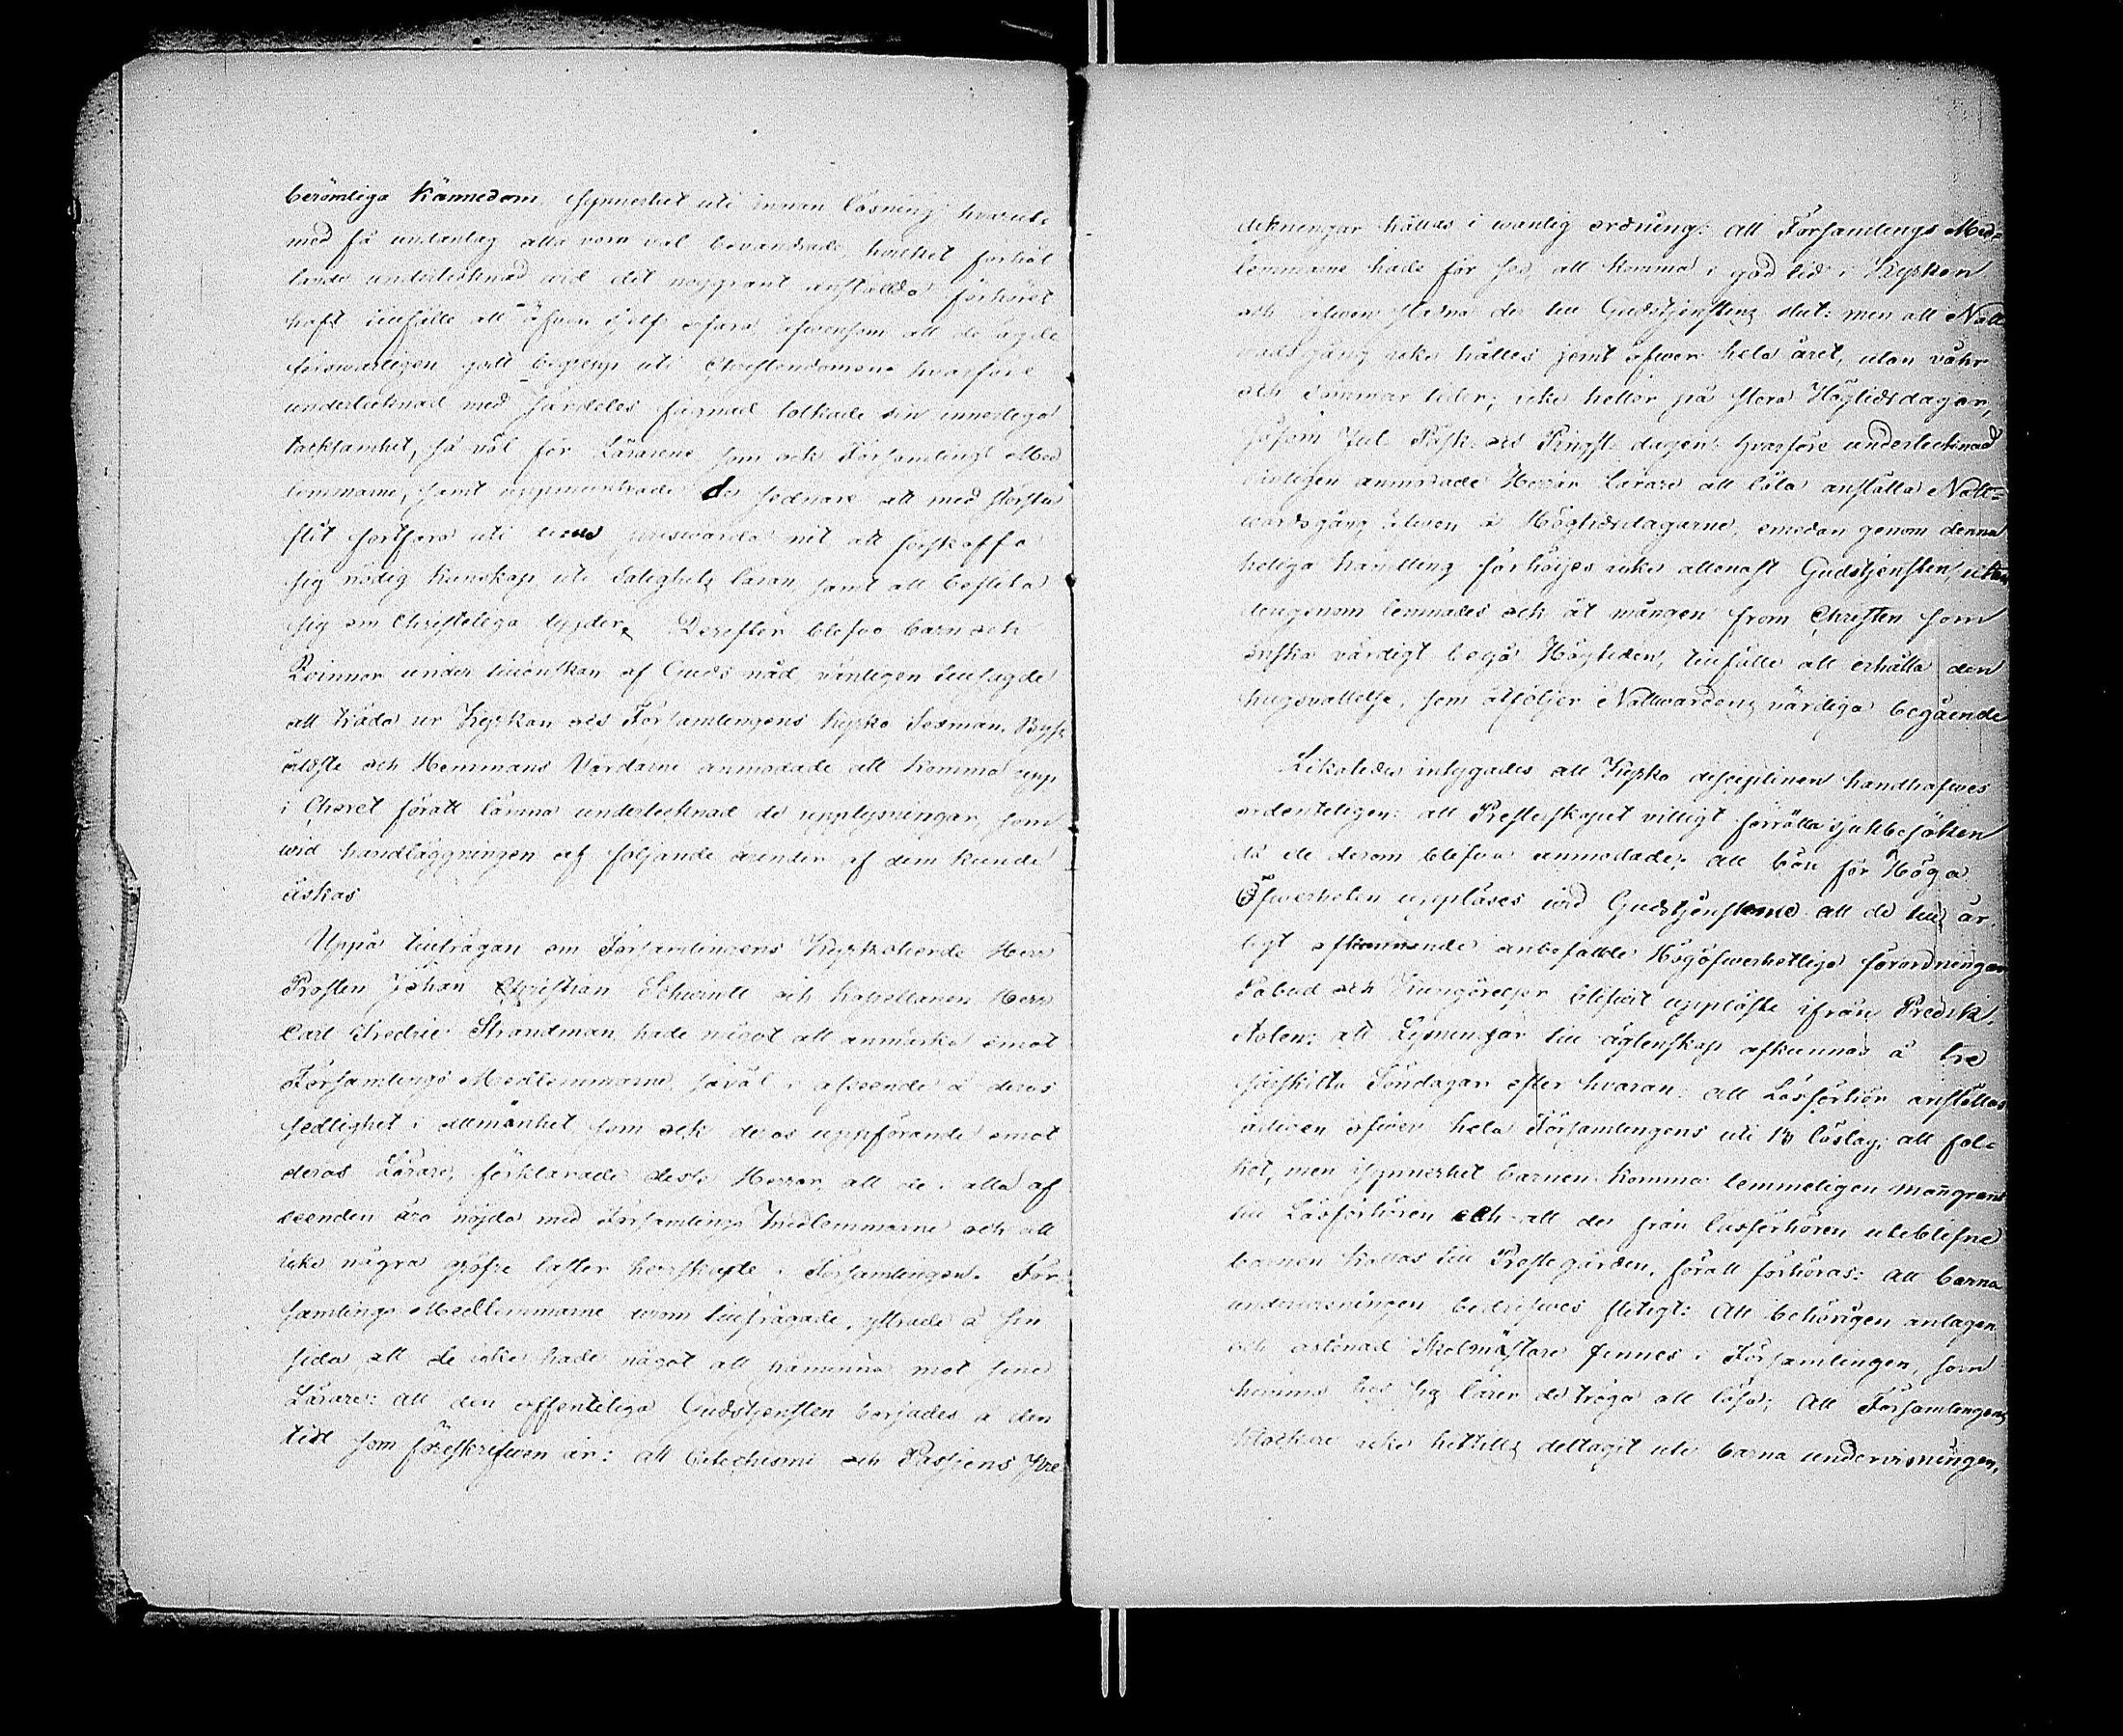 berömliga Kännedom synnerhet uti innan läsning hvaruti
med få undantag alla voro väl bevandrade, hvilket förhål
lande undertecknad wid det noggrant anställda förhöret
haft tillfälle att äfven sjelf erfara äfvensom att de ägde
försvarligen godt begrepp uti Christendomen hvarföre
undertecknad med särdeles fägnad tolkade sin innerliga
tacksamhet, så väl för Lärarene som ock Församlings Med
lemmarne, samt uppmuntrade de sednare att med största
flit fortfara uti deras prisvärda nit att förskaffa
sig nödig kunskap uti Salighets läran, samt att beflita
sig om Christeliga dygder. Derefter blefvo barn och
Qvinnor under tillönskan af Guds nåd vänligen tillsagde
att träda ur Kyrkan och Församlingens Kyrko Sexmän, By
äldste och Hemmans Värdarne anmodade att komma upp
i Choret föratt lämna undertecknad de upplysningar, som
wid handläggningen af följande ärender af dem kunde
äskas
Uppå tillfrågan om Församlingens Kyrkoherde Herr
Prosten Johan Christian Schwindt och Kapellanen Herr
Carl Fredric Strandman hade något att anmärka emot
Församlings Medlemmarne såväl i afseende å deras
sedlighet i allmänhet som ock deras uppförande emot
deras Lärare, förklarade desse Herrar, att de i alla af
seenden äro nöjda med Församlings Medlemmarne och att
icke några gröfre laster herrskade i Församlingen. För
samlings Medlemmarne derom tillfrågade, yttrade å sin
sida att de icke hade något att påminna mot sine
Lärare: att den offentliga Gudstjensten börjades å den
tid som föreskrifven är: att Catechismi och Passions Pre
dikningar hållas i wanlig ordning: att Församlings Med-
lemmarne hade för sed, att komma i god tid i Kyrkan
och äfwen stadna der till Gudstjenstens slut: men att Natt
wardsgång icke hålles jemt öfwer hela året, utan vår
och sommar tider; icke heller på stora Högtidsdagar,
såsom Jul Påsk och Pingst dagen: hvarföre undertecknad
vänligen anmodade Herrar Lärare att låta anställa Natt-
wardsgång äfwen å Högtidsdagarne, emedan genom denna
heliga handling förhöjes icke allenast Gudstjensten, utan
derigenom lemnades och åt mången from Christen som
önska värdigt begå Högtiden, tillfälle att erhålla den
hugsvalelse, som åtföljer Nattwardens värdiga begående
Likaledes intygades att Kyrko disciplinen handhafves
ordenteligen: att Presterskapet villigt förrätta sjukbesöken
då de derom blefvo anmodade: att bön för Höga
Öfwerheten uppläses wid Gudstjensterne att de till år
ligt afkunnande anbefallde Högöfwerhetliga förordningar
Påbud och Kungörelser blifvit uppläste ifrån Predik
stolen: att Lysningar till äktenskap afkunnas å tre
särskilta Söndagar efter hvaran: att Läsförhör anställas
årligen öfwer hela Församlingens uti 13 läslag: att fol-
ket, men isynnerhet barnen komma temmeligen mangrant
till Läsförhören och att der från läsförhören uteblifne
barnen kallas till Prestegården, föratt förhöras: att barna
undervisningen bedrifves flitigt: att behörigen antagen
och aflönad Skolmästare finnes i Församlingen, som
hemma hos sig lärer de tröga att läsa; Att Församlingens
Klockare icke hittills deltagit uti barna undervisningen,